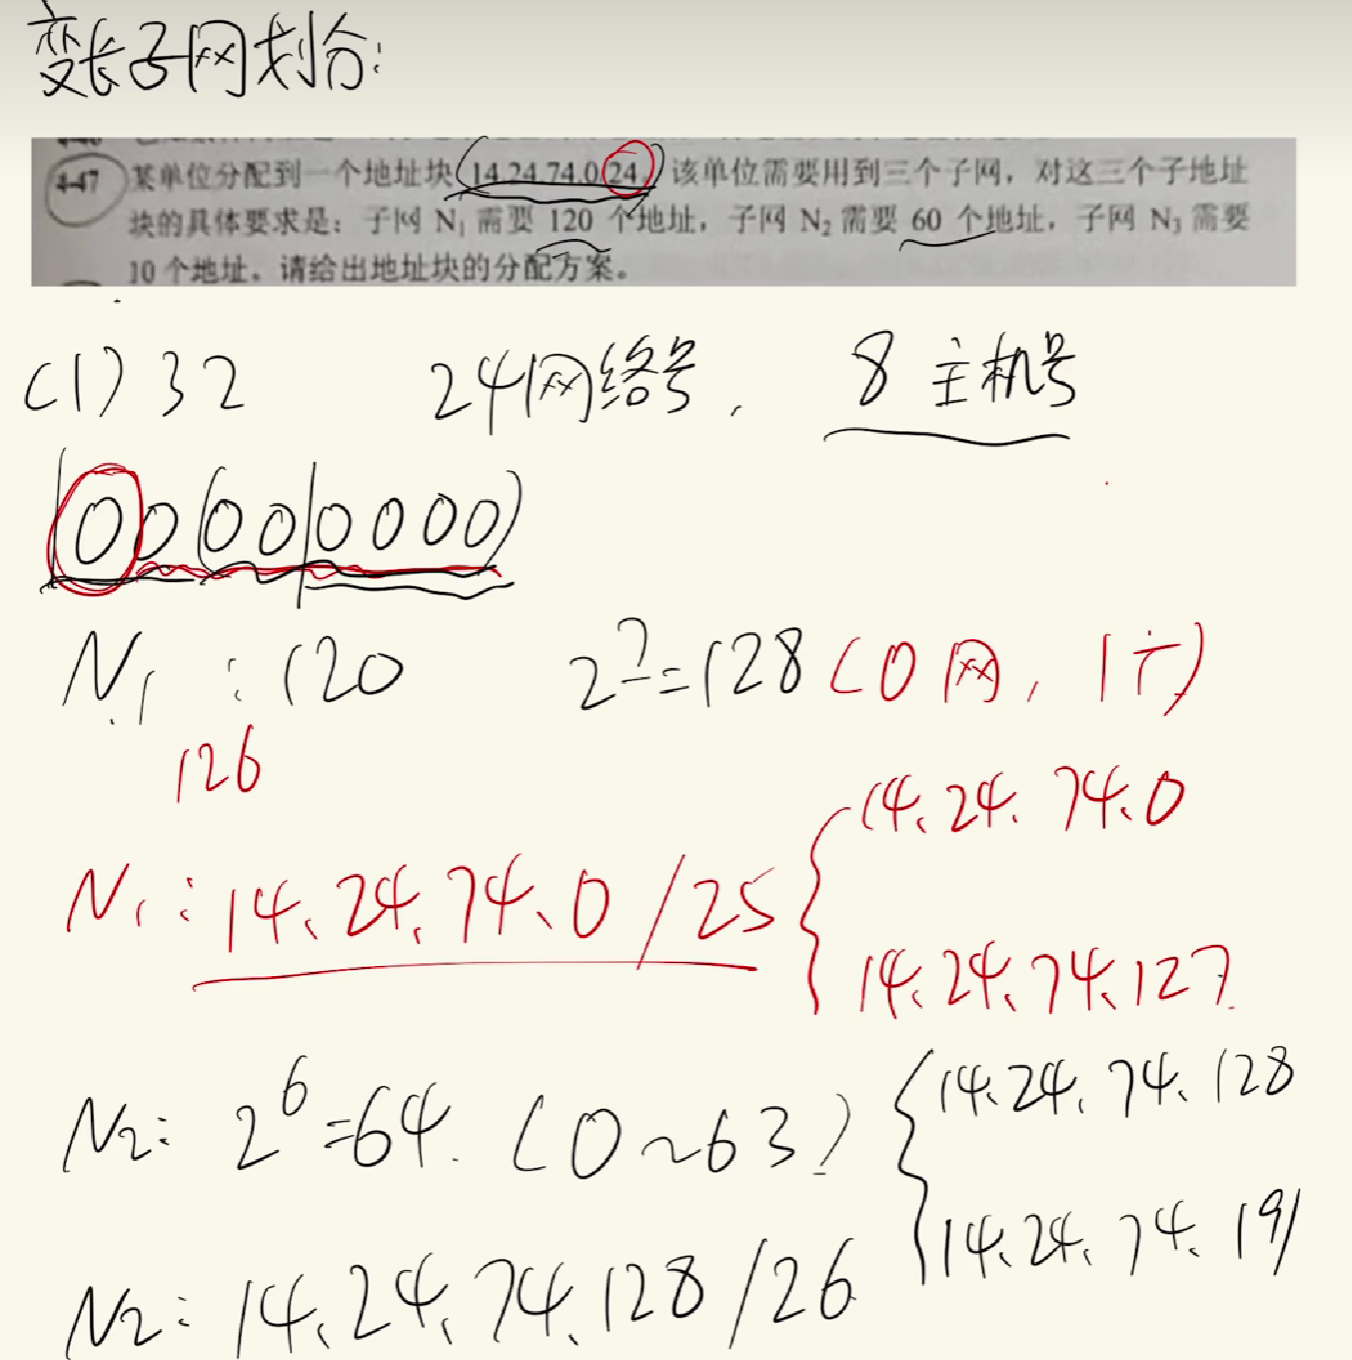 变长子网划分:
4-47 某单位分配到一个地址块(14.24.74.0/24)该单位需要用到三个子网，对这三个子地址
块的具体要求是：子网 N₁ 需要 120 个地址，子网 N₂ 需要 60 个地址，子网 N₃ 需要
10 个地址。请给出地址块的分配方案。
(1) 32 24网络号, 8 主机号
00000000
N₁ : 120 2⁷=128 (0 网, 1广)
126
N₁: 14.24.74.0/25
14.24.74.0
14.24.74.127
N₂: 2⁶=64. (0~63)
14.24.74.128
14.24.74.191
N₂: 14.24.74.128/26